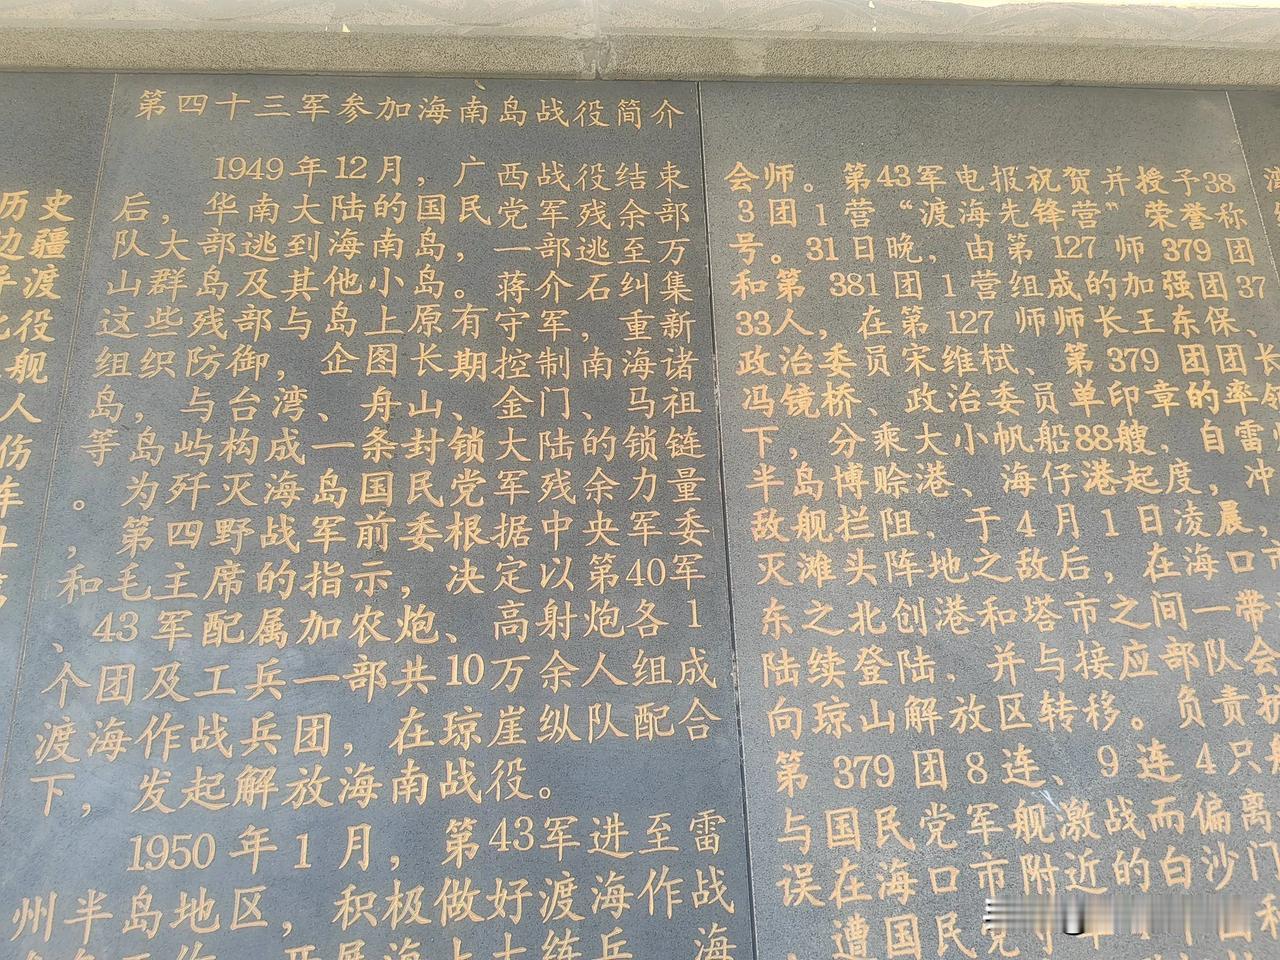 历史
边疆
渡
役
舰
人
伤
第四十三军参加海南岛战役简介
1949年12月，广西战役结束
后，华南大陆的国民党军残余部
队大部逃到海南岛，一部逃至万
山群岛及其他小岛。蒋介石纠集
这些残部与岛上原有守军，重新
组织防御，企图长期控制南海诸
岛，与台湾、舟山、金门、马祖
等岛屿构成一条封锁大陆的锁链
。为歼灭海岛国民党军残余力量
，第四野战军前委根据中央军委
和毛主席的指示，决定以第40军
、43军配属加农炮、高射炮各1
个团及工兵一部共10万余人组成
渡海作战兵团，在琼崖纵队配合
下，发起解放海南战役。
1950年1月，第43军进至雷
州半岛地区，积极做好渡海作战
开展海上大练兵。海
会师。第43军电报祝贺并授予38
3团1营“渡海先锋营”荣誉称
号。31日晚，由第127师379团
和第381团1营组成的加强团37
33人，在第127师师长王东保、
政治委员宋维栻、第379团团长
冯镜桥、政治委员单印章的率领
下，分乘大小帆船88艘，自雷
半岛博赊港、海仔港起度，冲
敌舰拦阻，于4月1日凌晨，
灭滩头阵地之敌后，在海口市
东之北创港和塔市之间一带
陆续登陆，并与接应部队会
向琼山解放区转移。负责
第379团8连、9连4只
与国民党军舰激战而偏离
误在海口市附近的白沙门
，遭国民党